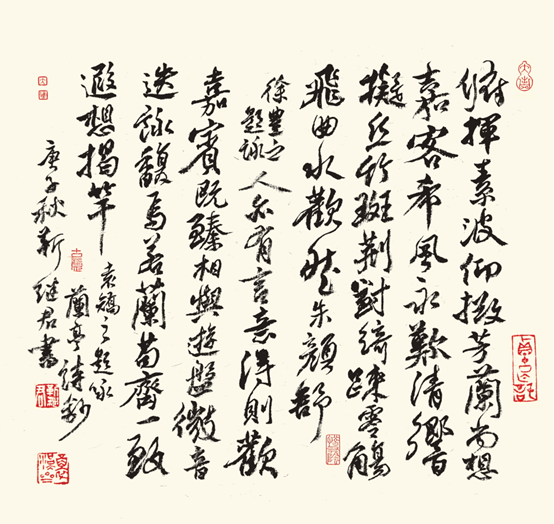 俯揮素波仰掇芳蘭尚想
嘉客希風永歎清響
擬丝竹斑荊對綺疎零觴
飛曲水歡然朱顏舒
徐豐之
題詠
人亦有言意得則歡
嘉賓既臻相與遊盤微音
迭詠馥焉若蘭苟齊一致
遐想揭竿
袁矯之題詠
蘭亭詩鈔
庚子秋靳
继君書